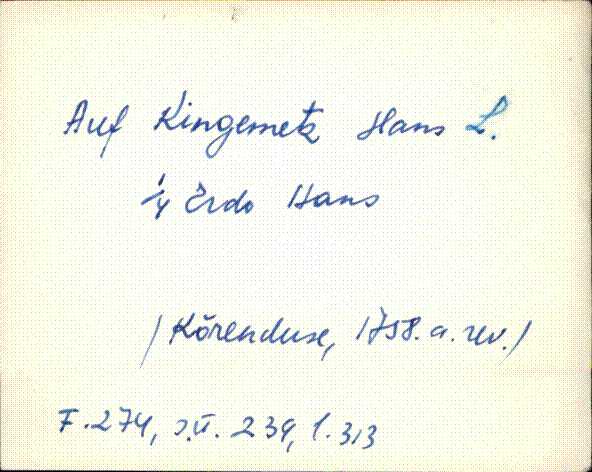 Auf Kingemetz Hans L.
1/4 Erdo Hans
/Kõrenduse, 1758. a. rev./
F. 274, s.ü. 239, l. 313